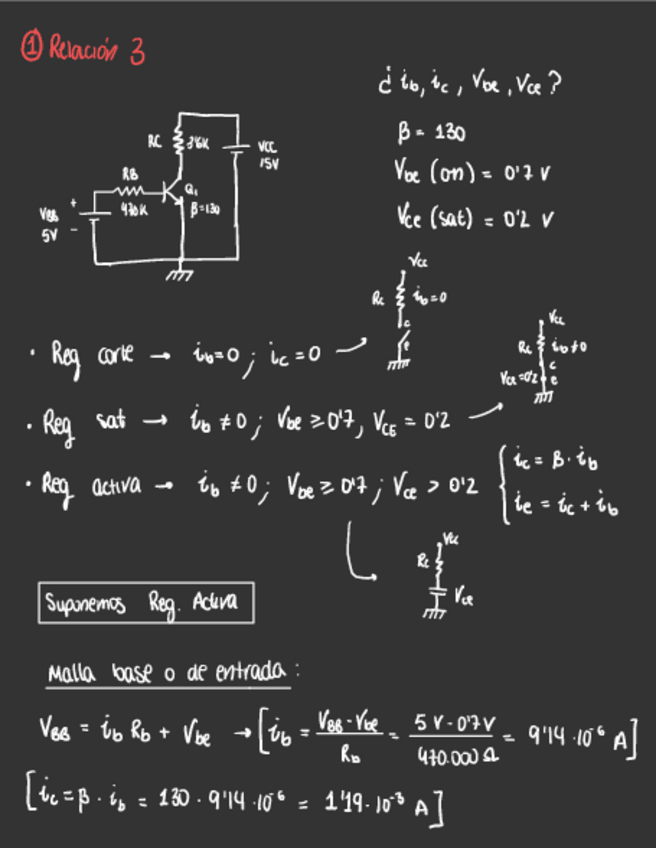 ① Relación 3
¿ ib, ic, Vbe, Vce ?
β = 130
Vbe (on) = 0'7 V
Vce (sat) = 0'2 V
RC 3'6K
VCC
15V
RB
470K
Q1
β=130
VBB
5V
+
-
Vcc
Rc
ib=0
c
e
· Reg corte → ib=0 ; ic=0
Vcc
Rc
ib≠0
c
Vce=0'2
e
· Reg sat → ib ≠ 0 ; Vbe ≥ 0'7, VCE = 0'2
· Reg activa → ib ≠ 0 ; Vbe ≥ 0'7 ; Vce > 0'2
ic = β · ib
ie = ic + ib
Vcc
Rc
Vce
Suponemos Reg. Activa
Malla base o de entrada :
VBB = ib Rb + Vbe → [ ib = (VBB - Vbe) / Rb = (5 V - 0'7 V) / 470.000 Ω = 9'14 · 10⁻⁶ A ]
[ ic = β · ib = 130 · 9'14 · 10⁻⁶ = 1'19 · 10⁻³ A ]